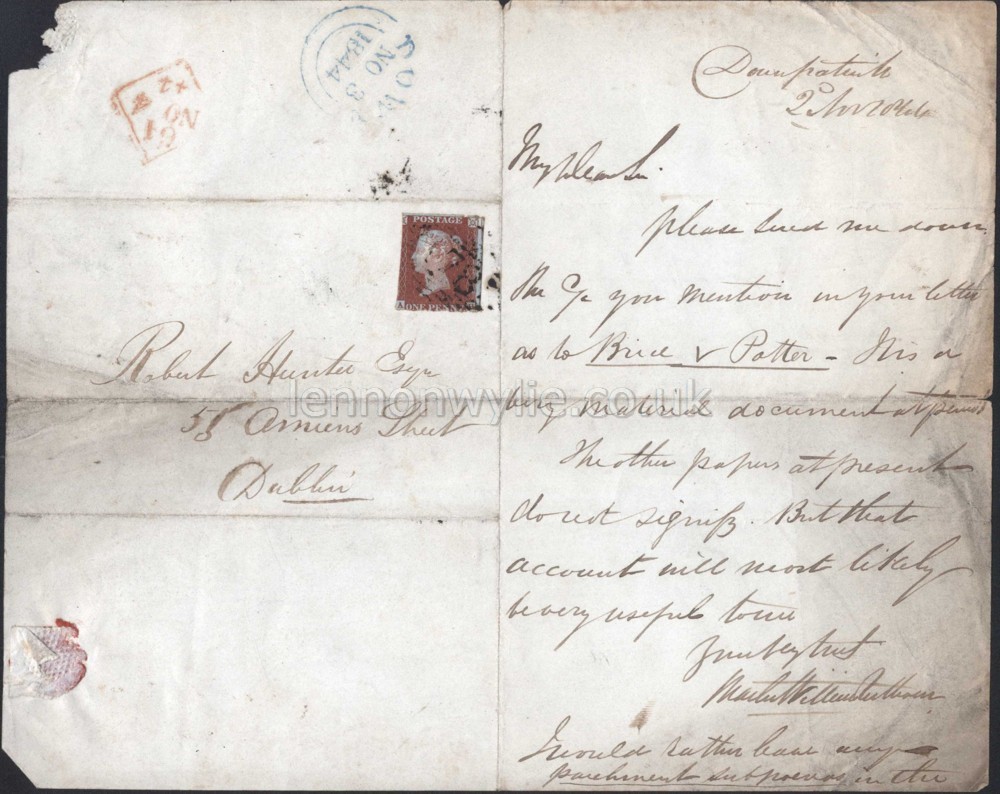 DOWN
NO 3
1844
NO
1844
POSTAGE
ONE PENNY
Robert Hunter Esqr
55 Amiens Street
Dublin
lennonwylie.co.uk
Downpatrick
2 Nov 1844
My Dear Sir
please send me down
the a/c you mention in your letter
as to Brice & Potter - It is a
very material document at present
The other papers at present
do not signify. But that
account will most likely
be very useful to me
Yours very truly
I would rather have any
parchment subpoenas in the